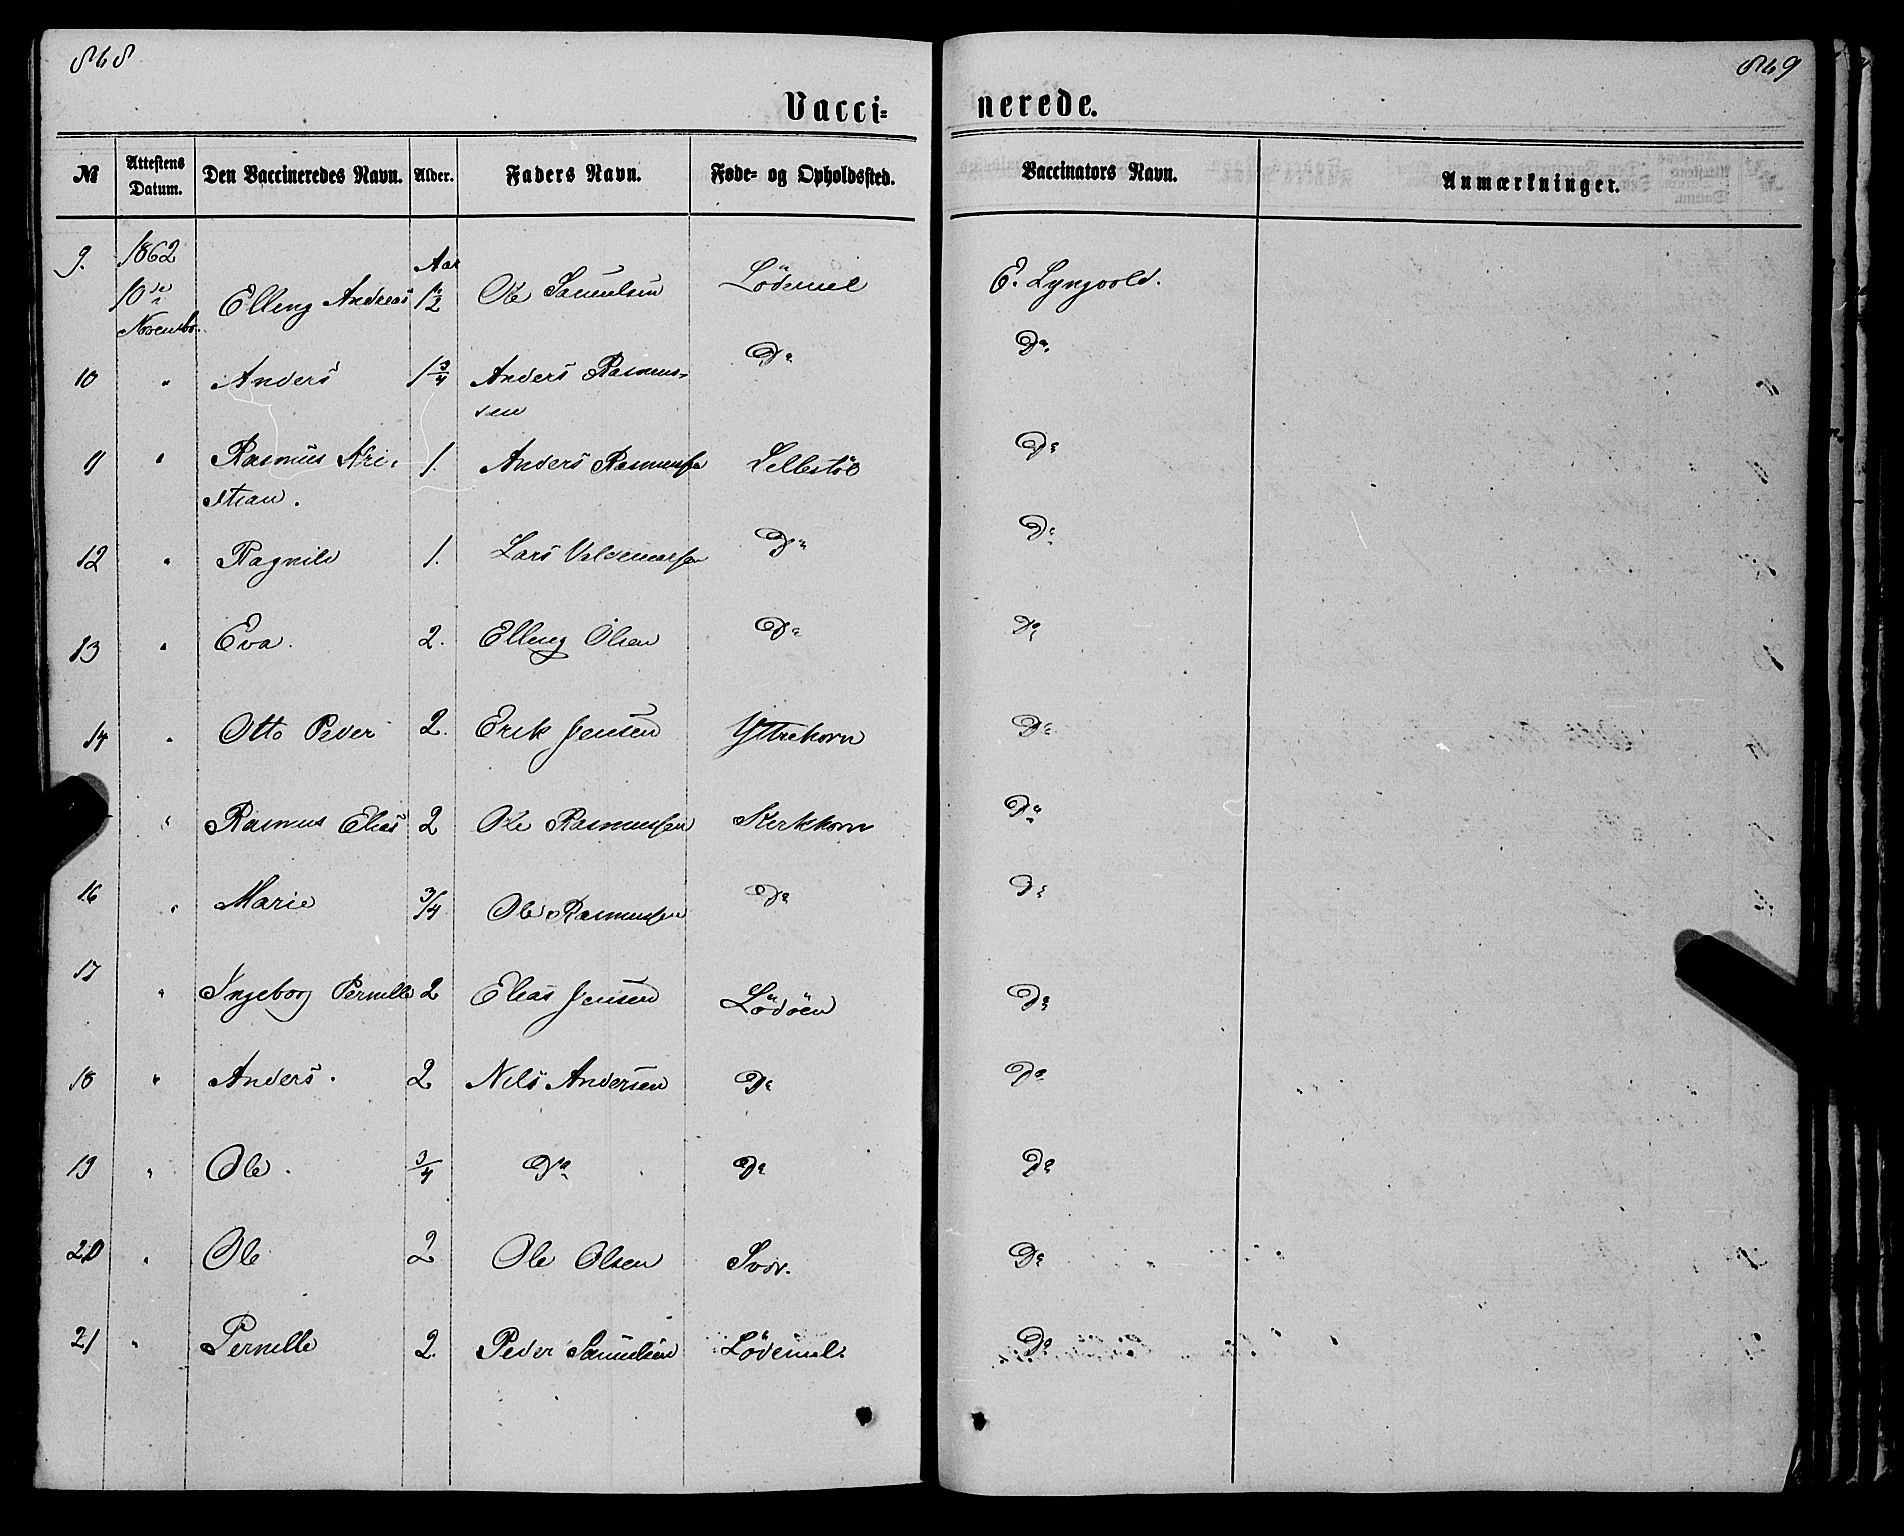 868
869
Vacci=
nerede.
№ Attestens Datum. Den Vaccineredes Navn. Alder. Faders Navn. Føde= og Opholdssted. Vaccinators Navn. Anmærkninger.
9. 1862 Aar
10de Elling Andreas 1 1/2 Ole Samuelsen Lödemel E. Lyngvold.
Novembr.
10 " Anders 1 3/4 Anders Rasmus= Do Do
sen
11 " Rasmus Kri- 1. Anders Rasmussen Sellestöl Do
stian.
12 " Ragnild 1. Lars Valdemarsen Do Do
13 " Eva. 2. Elling Olsen Do Do
14 " Otto Peder 2. Erik Jensen Yttrehorn Do
" Rasmus Elias 2 Ole Rasmussen Kerkhorn Do
16 " Marie 3/4 Ole Rasmussen Do Do
17 " Ingeborg Pernille 2 Elias Jensen Lödöen Do
18 " Anders. 2 Nils Andersen Do Do
19 " Ole. 3/4 Do Do Do
20 " Ole 2 Ole Olsen Svor. Do
21 " Pernille 2 Peder Samuelsen Lödemel. Do